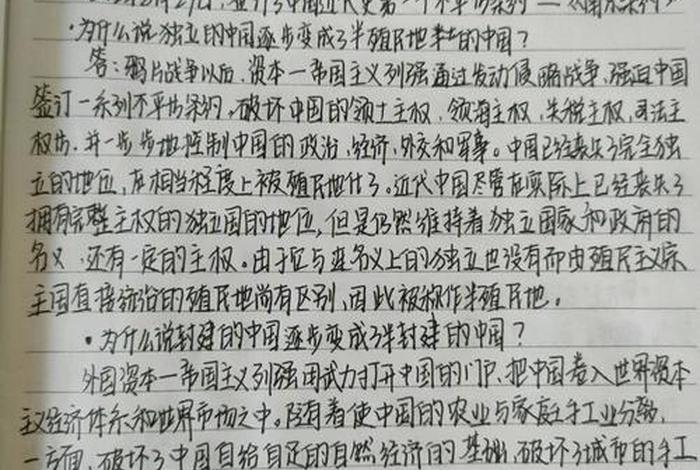 签订了中国近代史第一个不平等条约——《南京条约》
·为什么说独立的中国逐步变成了半殖民地的中国？
答：鸦片战争以后，资本—帝国主义列强通过发动侵略战争，强迫中国
签订一系列不平等条约，破坏中国的领土主权、领海主权、关税主权、司法主
权等，并一步步地控制中国的政治、经济、外交和军事。中国已经丧失了完全独
立的地位，在相当程度上被殖民地化了。近代中国尽管在实际上已经丧失了
拥有完整主权的独立国的地位，但是仍然维持着独立国家和政府的
名义，还有一定的主权。由于它与连名义上的独立也没有而由殖民主义宗
主国直接统治的殖民地尚有区别，因此被称作半殖民地。
·为什么说封建的中国逐步变成了半封建的中国？
外国资本—帝国主义列强用武力打开中国的门户，把中国卷入世界资本
主义经济体系和世界市场之中。随着使中国的农业与家庭手工业分离，
一方面，破坏了中国自给自足的自然经济的基础，破坏了城市的手工